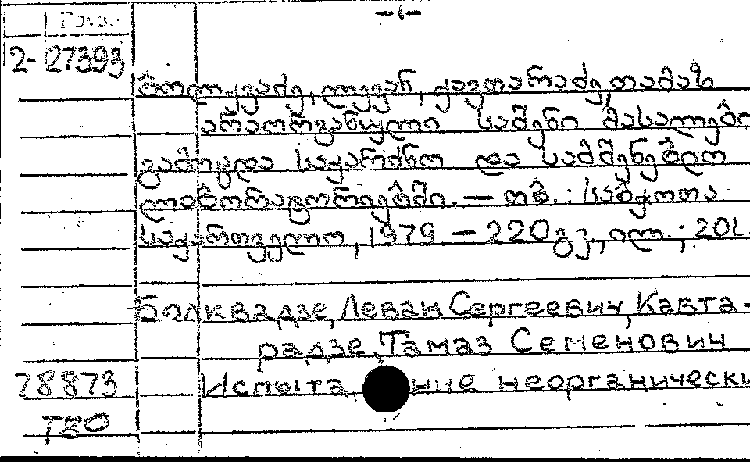 2-27393
ბოლქვაძე, ლევან, ქავთარაძე, თამაზ
არაორგანული საშენი მასალები
გამოცდა საქარხნო და სამშენებლო
ლაბორატორიებში. — თბ. : საბჭოთა
საქართველო, 1979 — 220 გვ., ილ.; 20 L
Болквадзе, Леван Сергеевич, Кавта-
радзе, Тамаз Семенович
78873 Испыта ние неорганически